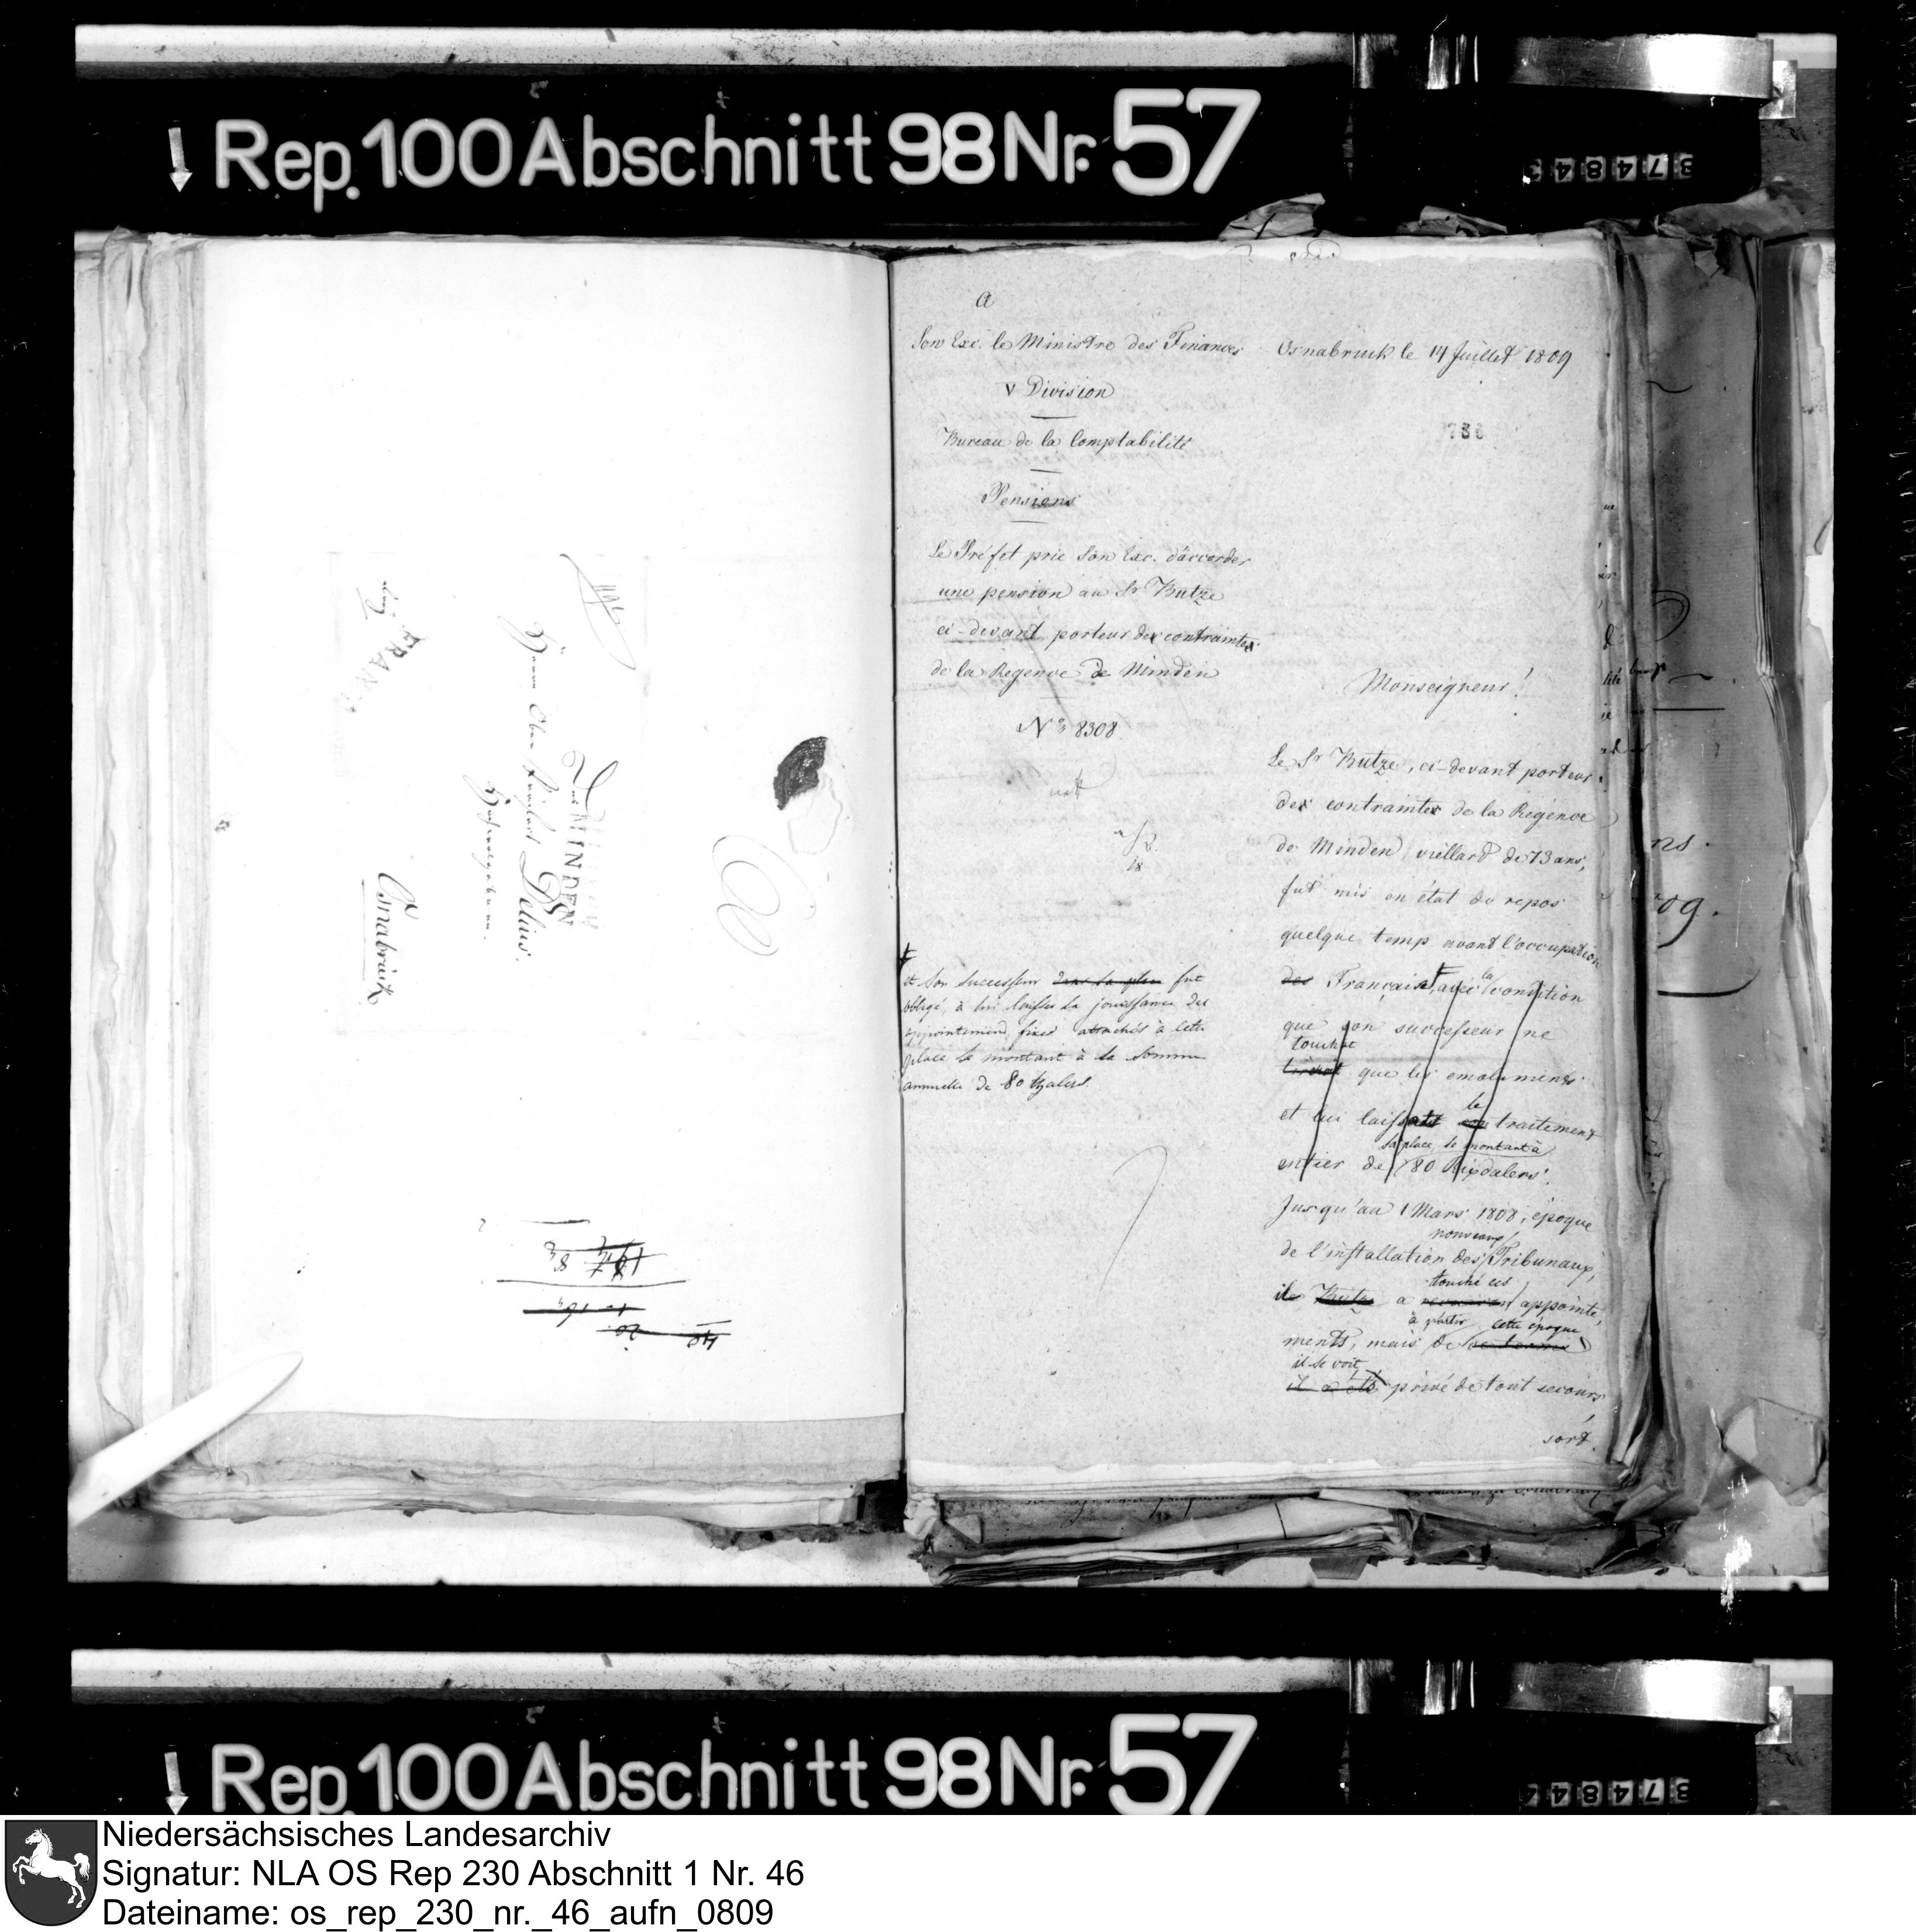 Rep. 100 Abschnitt 98 Nr. 57
374843
FRAN
MINDEN
Herrn Ober
Delius.
Hochwolgeboren.
Osnabrück
A
Son Exc. le Ministre des Finances
V Division
Bureau de la Comptabilité
Pensions
Le Préfet prie Son Exc. d'accorder
une pension au Sr Butze
ci-devant porteur des contraintes
de la Regence de Minden
No 8308
Osnabruck le 14 Juillet 1809
736
Monseigneur!
Le Sr Butze, ci-devant porteur
des contraintes de la Regence
de Minden, viellard de 73 ans,
fut mis en état de repos
quelque temp avant l'occupation
des Français, avec la condition
que son successeur ne
touchat
que les emoluments
et lui laissat le traitement
sa place se montant à
entier de 80 Rixdalers.
Jusqu'au 1 Mars 1808, époque
nouveaux
de l'installation des Tribunaux,
touché ces
il Butze a appointe,
à partir cette époque
ments, mais de
il se voit
il a été privé de tout secours
sort.
et son successeur dans la place fut
obligé, à lui laisser la jouissance des
appointemens fixes attachés à cette
place se montant à la somme
annuelle de 80 thalers.
Rep. 100 Abschnitt 98 Nr. 57
Niedersächsisches Landesarchiv
Signatur: NLA OS Rep 230 Abschnitt 1 Nr. 46
Dateiname: os_rep_230_nr._46_aufn_0809